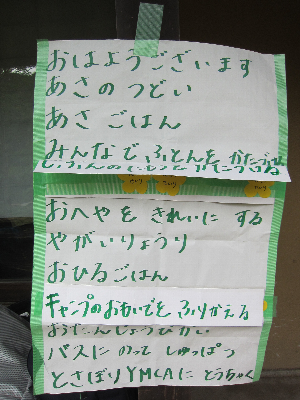 おはようございます
あさの つどい
あさ ごはん
みんなで ふとんを かたづける
おへやを きれいに する
やがいりょうり
おひるごはん
キャンプの おもいでを ふりかえる
おたんじょうびかい
バスに のって しゅっぱつ
とさぼり YMCAに とうちゃく